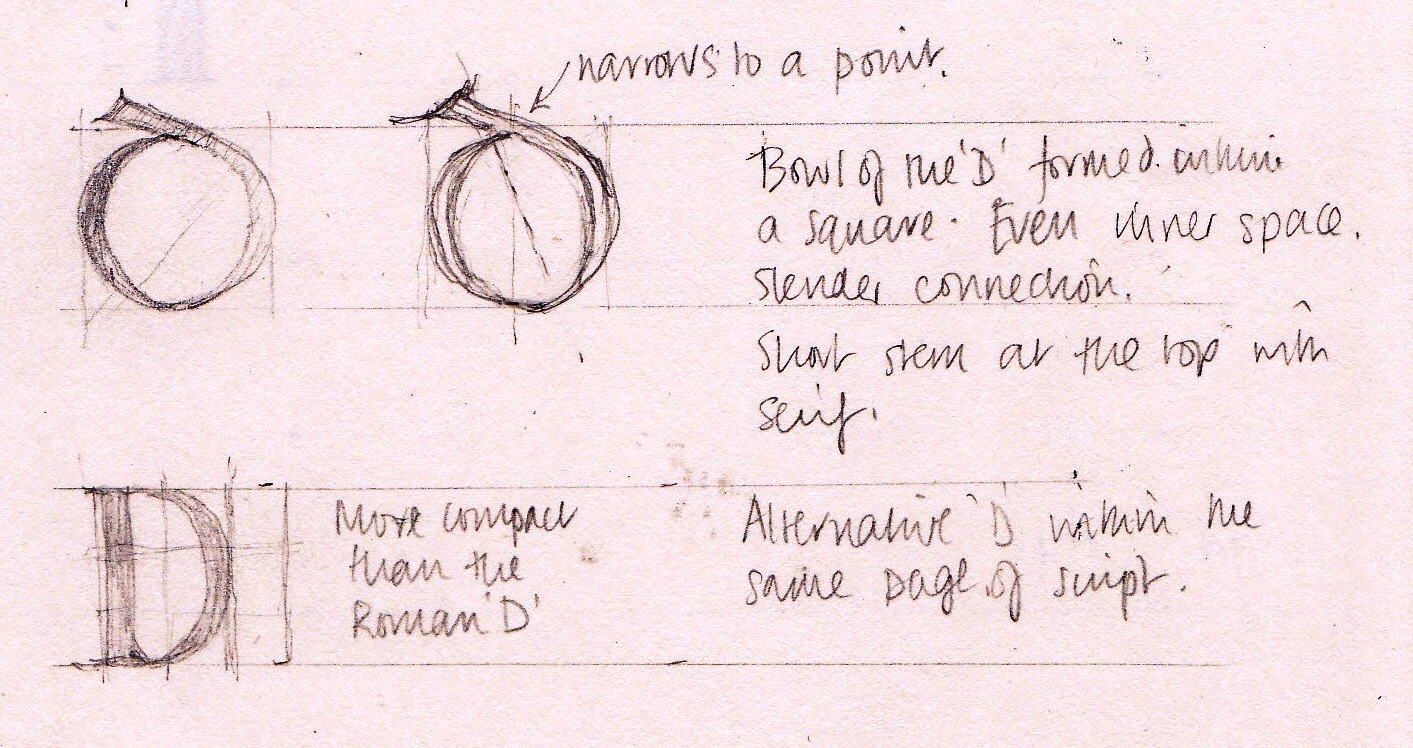 narrows to a point.
Bowl of the 'D' formed within
a square. Even inner space.
Slender connection.
Short stem at the top with
serif.
D
More compact
than the
Roman 'D'
Alternative 'D' within the
same page of script.